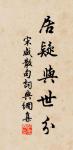 居疑與世分
宋咸散句詞典網集